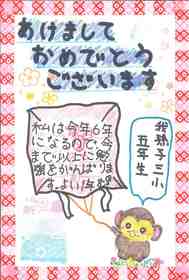 あけまして
おめでとう
ございます
私は今年6年
になるので、今
まで以上に勉
強をがんばりま
す。よい1年を
我孫子三小
五年生